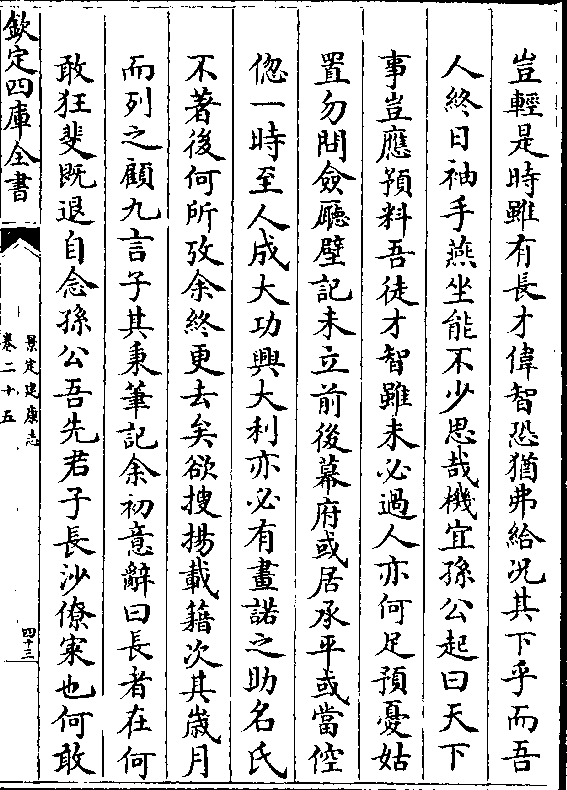 豈輕是時雖有長才偉智恐猶弗給况其下乎而吾
人終日袖手燕坐能不少思哉機宜孫公起曰天下
事豈應預料吾徒才智雖未必過人亦何足預憂姑
置勿問僉廳壁記未立前後幕府或居承平或當倥
偬一時至人成大功興大利亦必有畫諾之助名氏
不著後何所攷余終更去矣欲搜揚載籍次其歲月
而列之顧九言子其秉筆記余初意辭曰長者在何
敢狂斐既退自念孫公吾先君子長沙僚寀也何敢
欽定四庫全書
景定建康志
卷二十五
四十三